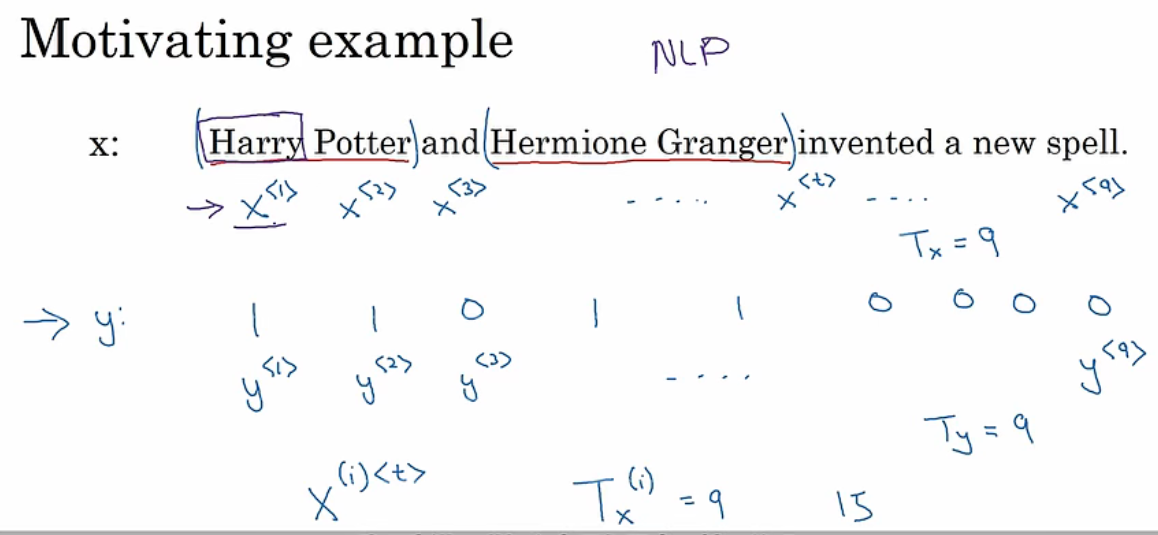 Motivating example NLP
x: (Harry Potter) and (Hermione Granger) invented a new spell.
→ x<1> x<2> x<3> ..... x<t> .... x<9>
Tx = 9
→ y: 1 1 0 1 1 0 0 0 0
y<1> y<2> y<3> ..... y<9>
Ty = 9
X(i)<t> Tx(i) = 9 15